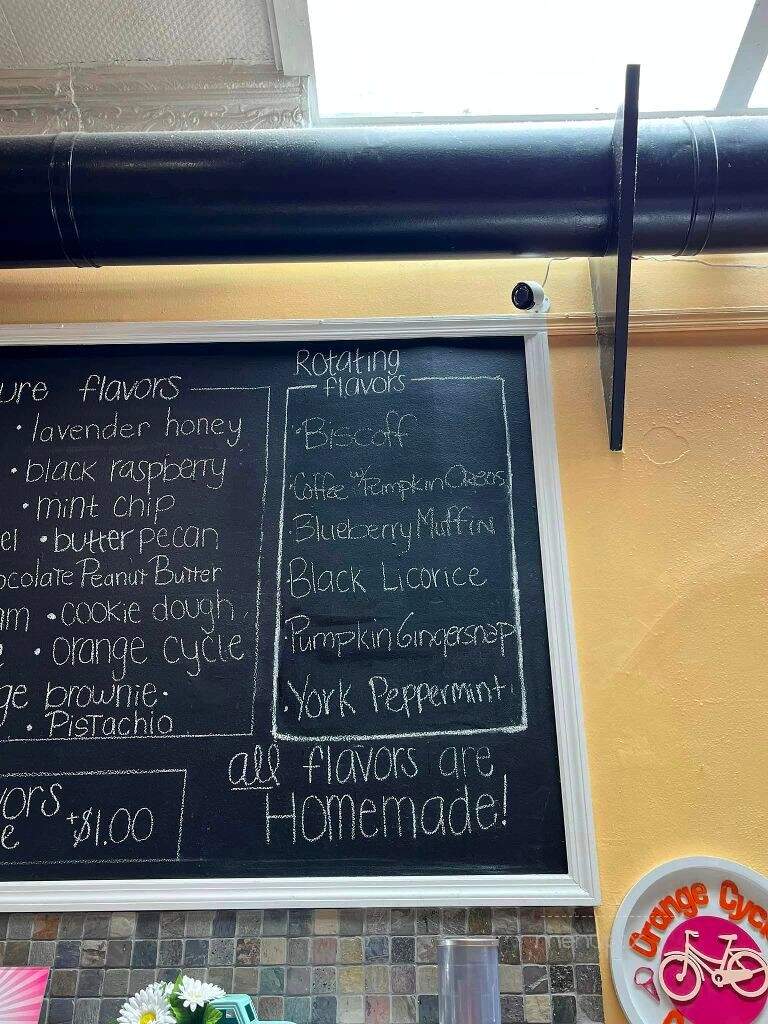 Rotating
flavors
ure flavors
• lavender honey
• black raspberry
• mint chip
el • butter pecan
ocolate Peanut Butter
am • cookie dough
e • orange cycle
ge brownie •
• Pistachio
• Biscoff
• Coffee w/ Pumpkin Oreos
• Blueberry Muffin
• Black Licorice
• Pumpkin Gingersnap
• York Peppermint
all flavors are
Homemade!
vors
e +$1.00
Orange Cyc